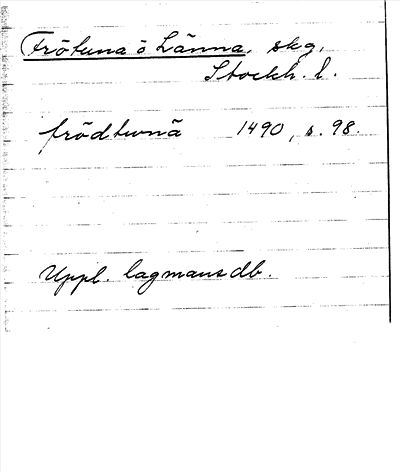 Frötuna o Länna, skg,
Stockh. l.
frödtunā 1490, s. 98.
Uppl. lagmansdb.